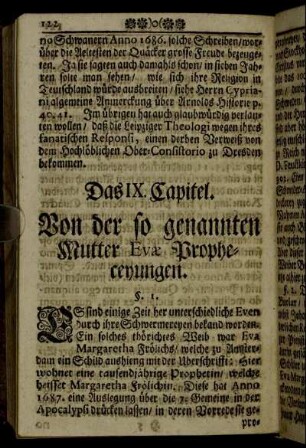 122
no Schwanern Anno 1686. solche Schreiben/ wor-
über die Aeltesten der Quäcker grosse Freude bezeuge-
ten. Ja sie sagten auch damahls schon/ in sieben Jah-
ren solte man sehen/ wie sich ihre Religion in
Teutschland würde ausbreiten/ siehe Herrn Cypria-
ni algemeine Anmerckung über Arnolds Historie p.
40. 41. Im übrigen hat auch glaubwürdig verlau-
ten wollen/ daß die Leipziger Theologi wegen ihres
fanatischen Responsi, einen derben Verweiß von
dem Hochlöblichen Ober-Consistorio zu Dresden
bekommen.
Das IX. Capitel.
Von der so genannten
Mutter Evæ Prophe-
ceyungen.
§. 1.
ES sind einige Zeit her unterschiedliche Even
durch ihre Schwermereyen bekand worden.
Ein solches thörichtes Weib war Eva
Margaretha Frölichs/ welche zu Amster-
dam ein Schild aushieng mit der Uberschrifft: Hier
wohnet eine tausendjährige Prophetin/ welche
heisset Margaretha Frölichin. Diese hat Anno
1687. eine Auslegung über die 7. Gemeine in der
Apocalypsi drucken lassen/ in deren Vorrede sie ge-
pre-